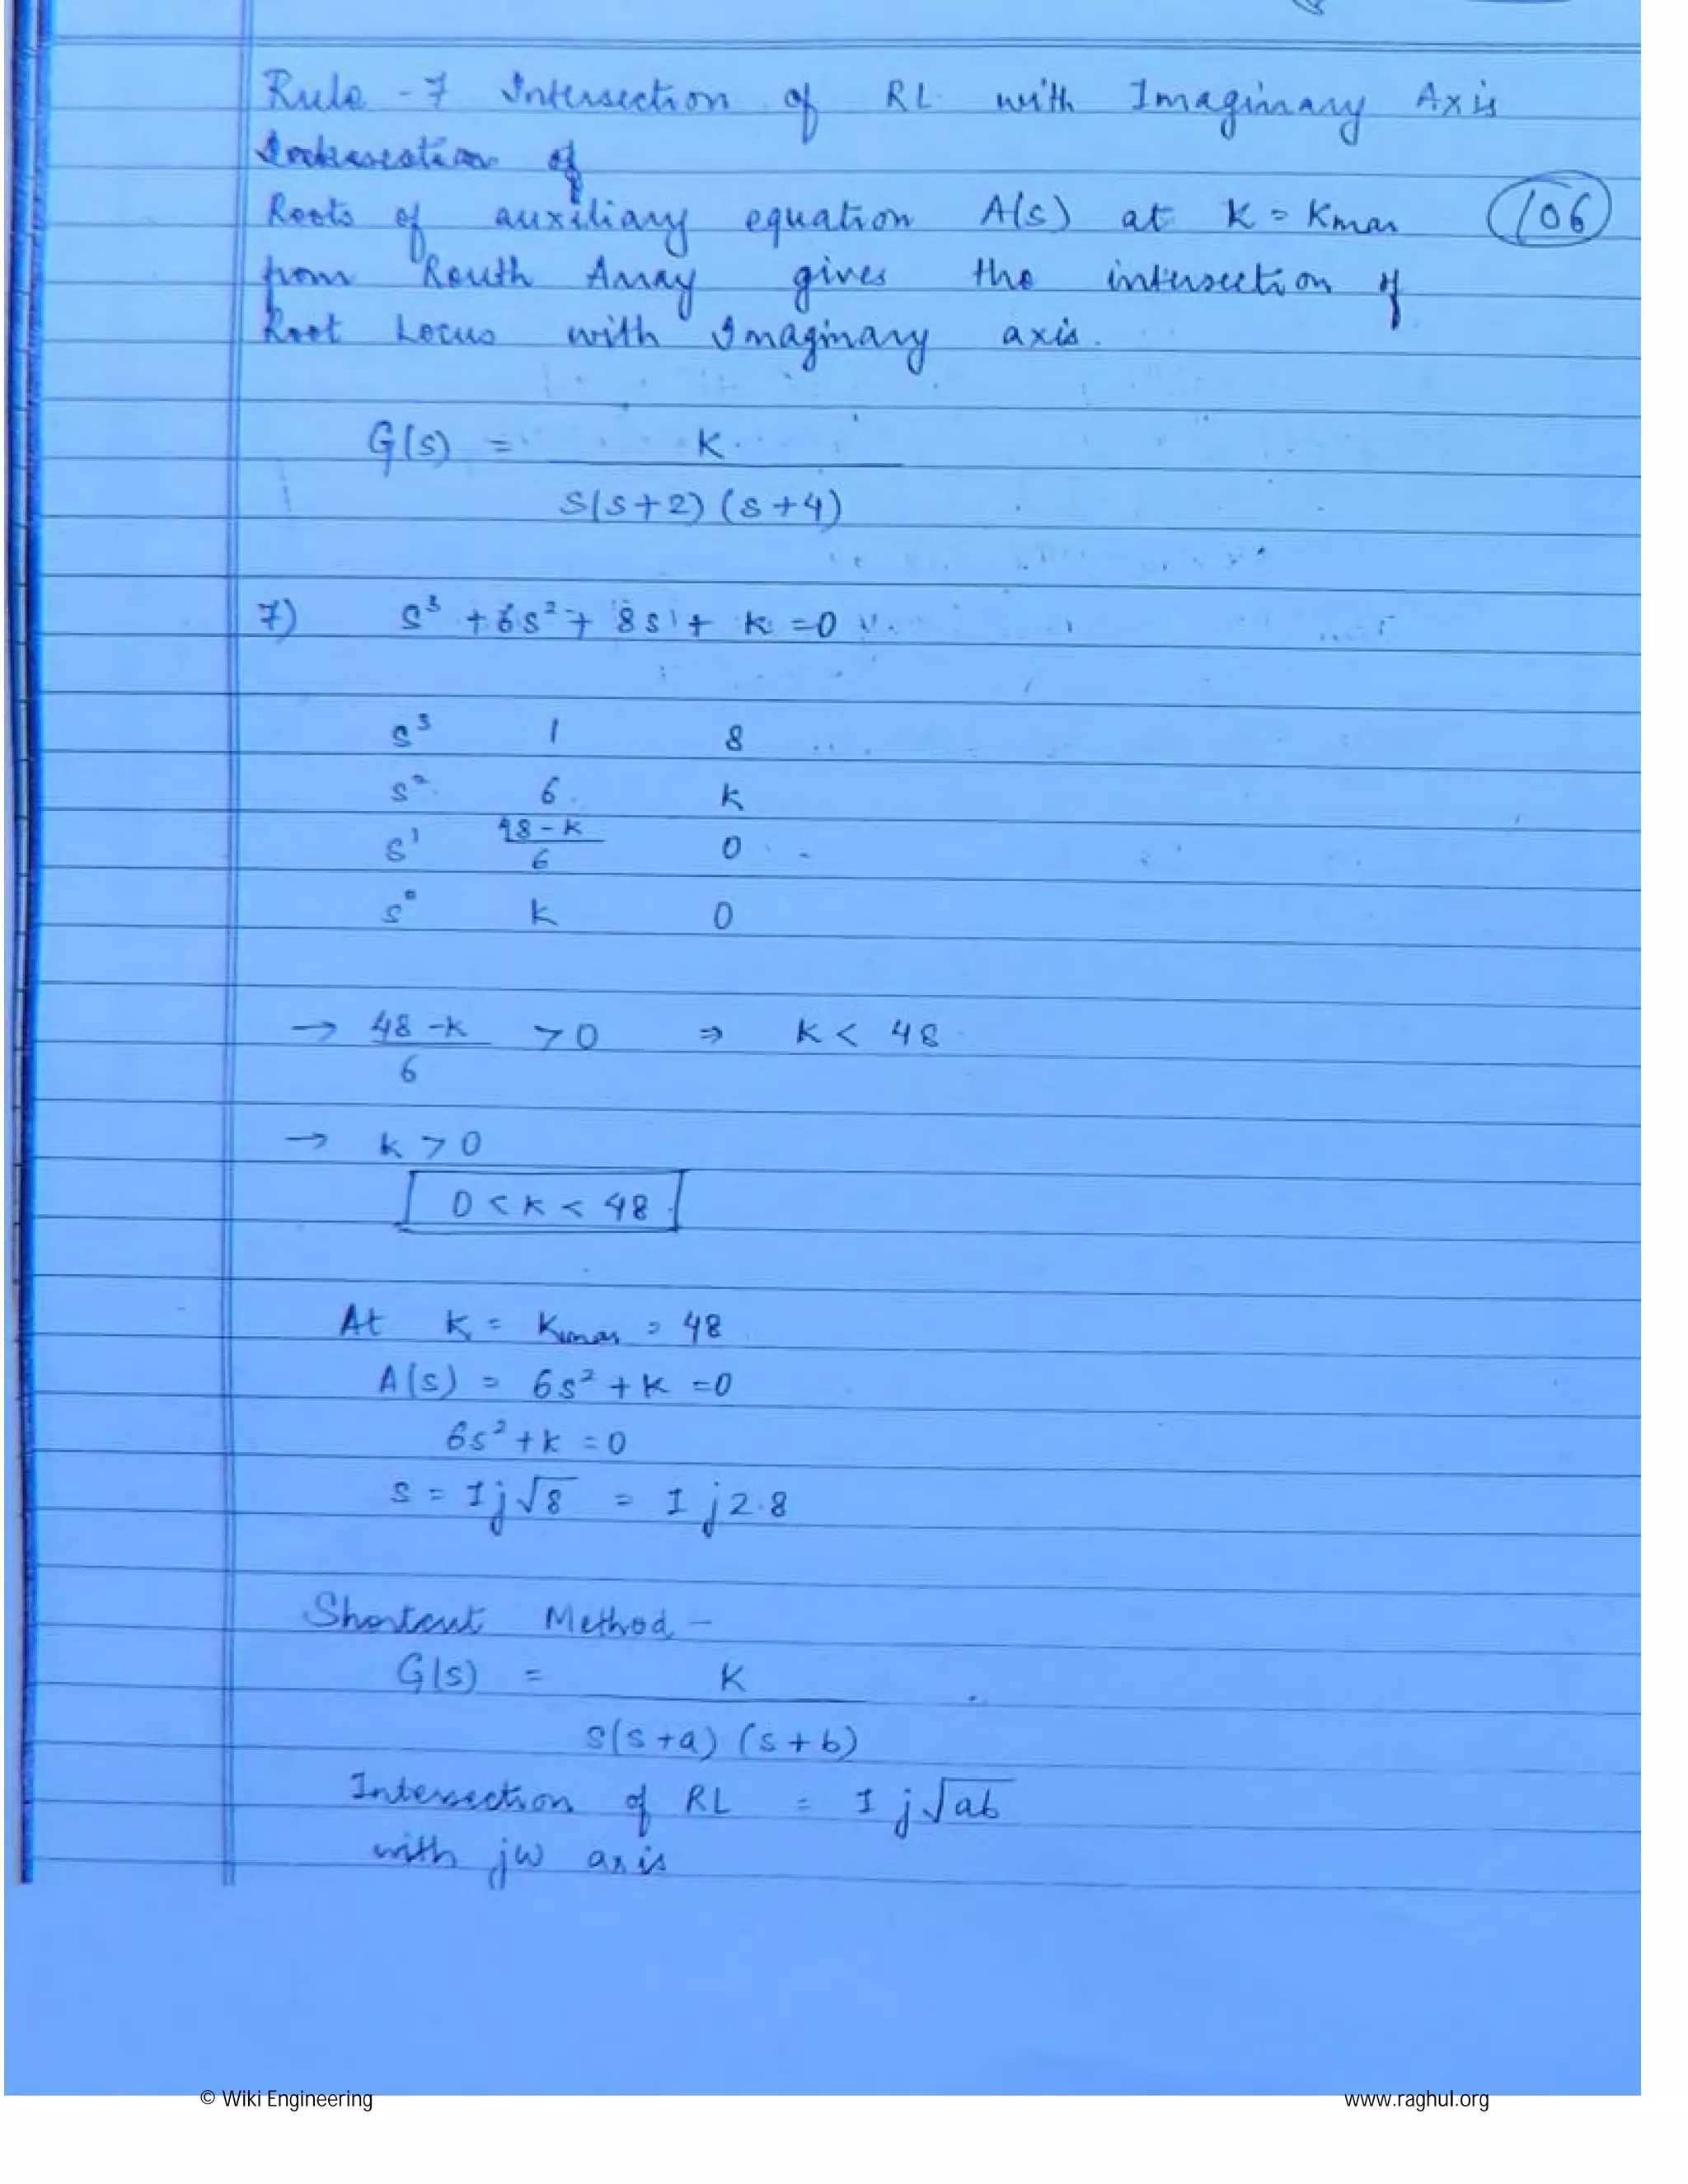 Rule - 7 Intersection of RL with Imaginary Axis
Intersection of
Roots of auxiliary equation A(s) at K = Kmax (106)
from Routh Array gives the intersection of
Root Locus with Imaginary axis.
G(s) = K
S(S+2) (S+4)
7) S³ + 6s² + 8s¹ + K = 0
s³ 1 8
s² 6 K
s¹ 48-K/6 0
s⁰ K 0
→ 48-K/6 > 0 ⇒ K < 48
→ K > 0
0 < K < 48
At K = Kmax = 48
A(s) = 6s² + K = 0
6s² + K = 0
s = ± j√8 = ± j2.8
Shortcut Method -
G(s) = K
S(s+a) (s+b)
Intersection of RL = ± j√ab
with jω axis
© Wiki Engineering www.raghul.org